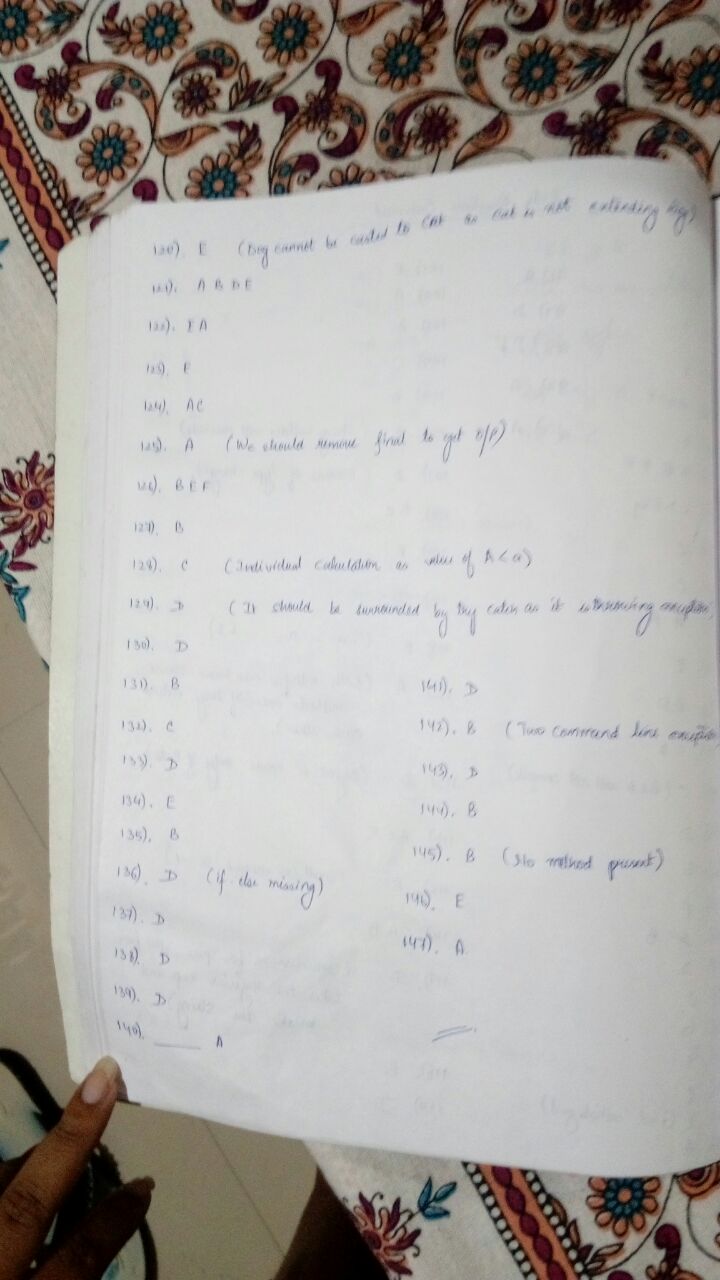 120). E (Dog cannot be casted to Cat as Cat is not extending Dog)
121). A B D E
122). E A
123). E
124). AC
125). A (We should remove final to get O/P)
126). B E F
127). B
128). C (Individual calculation as value of A < a)
129). D (It should be surrounded by try catch as it is throwing exception
130). D
131). B
132). C
133). D
134). E
135). B
136). D (if else missing)
137). D
138). D
139). D
140). A
141). D
142). B (Two command line
143). D
144). B
145). B (No method present)
146). E
147). A